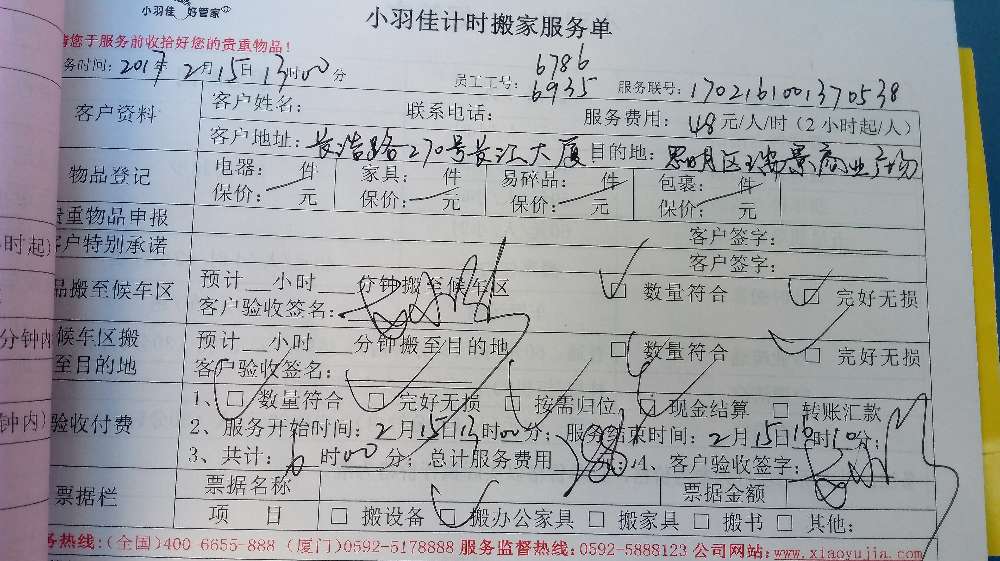 小羽佳 好管家
小羽佳计时搬家服务单
请您于服务前收拾好您的贵重物品!
务时间: 2017年 2月15日 13时00分 员工工号: 6786 6935 服务联号: 1702161001370538
客户资料 客户姓名: 联系电话: 服务费用: 48元/人/时(2小时起/人)
客户地址: 长浩路270号长江大厦 目的地: 思明区瑞景商业广场
物品登记 电器: 件 家具: 件 易碎品: 件 包裹: 件
保价: 元 保价: 元 保价: 元 保价: 元
贵重物品申报 客户签字:
客户特别承诺 客户签字:
品搬至候车区 预计__小时____分钟搬至候车区 □ 数量符合 □ 完好无损
客户验收签名:
候车区搬 预计__小时____分钟搬至目的地 □ 数量符合 □ 完好无损
至目的地 客户验收签名:
1、□ 数量符合 □ 完好无损 □ 按需归位 □ 现金结算 □ 转账汇款
验收付费 2、服务开始时间: 2月15日13时00分; 服务结束时间: 2月15日
3、共计: 时00分; 总计服务费用 ;4、客户验收签字:
票据栏 票据名称 票据金额
项 目 □ 搬设备 □ 搬办公家具 □ 搬家具 □ 搬书 □ 其他:
务热线:(全国)400 6655-888 (厦门)0592-5178888 服务监督热线:0592-5888123 公司网站:www.xiaoyujia.com
小时起)
分钟内
钟内)